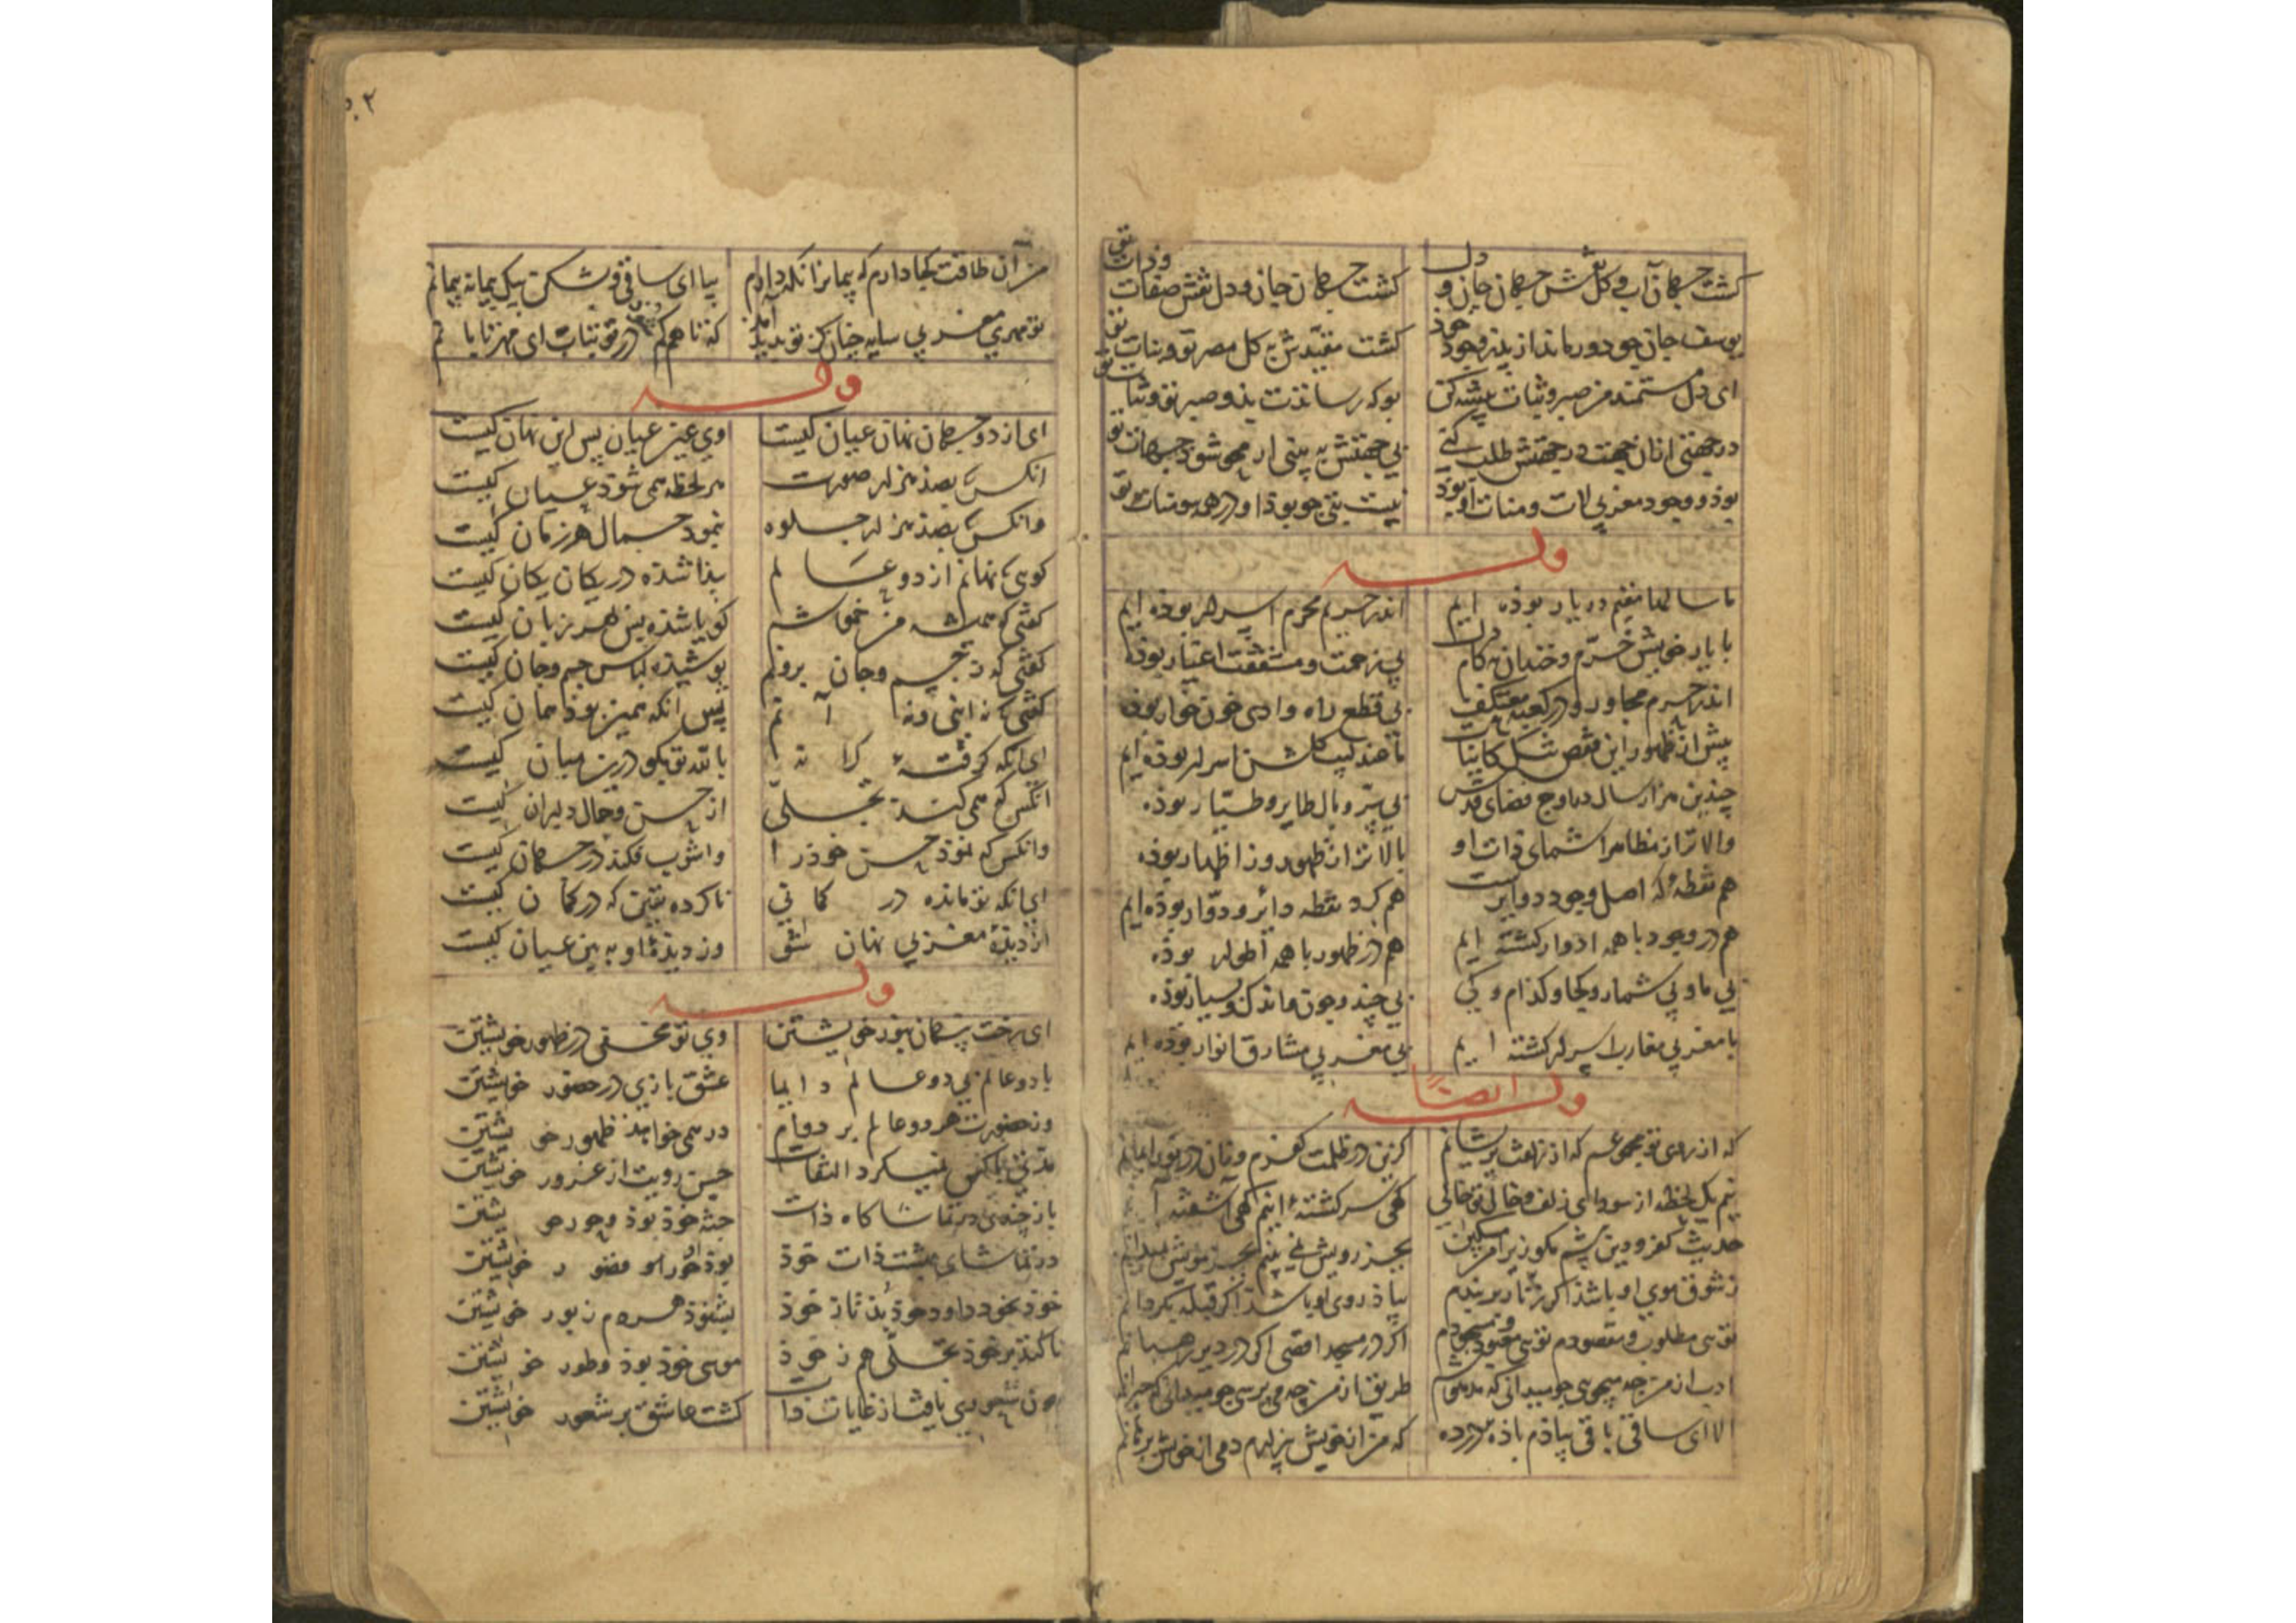 گشت جهان آب و گل نقش جهان جان و دل گشت جهان جان و دل نقش صفات و ذات تو
یوسف جان چو دور ماند از پدر وجود خود گشت مقید به گل مصر تو و بنات تو
ای دل مستمند من صبر و ثبات پیشه کن بو که رساندت بدو صبر تو و ثبات تو
در جهتی ازان جهت در جهتش طلب کنی بی جهتش به بینی ار محو شود جهات تو
بوذ و وجود مغربی لات و منات او بود نیست بتی چو بود او در همه سومنات تو
وله
ما سالها مقیم در یار بوده ایم اندر حریم محرم اسرار بوده ایم
با یار خویش خرم و خندان به کام دل بی زحمت و مشقت اغیار بوده
اندر حرم مجاور و در کعبه معتکف بی قطع راه وادی خون خوار بوده
پیش از ظهور این قفص تنگ کاینات ما عندلیب گلشن اسرار بوده ایم
چندین هزار سال در اوج فضای قدس بی پر و بال طایر و طیار بوده
والاتر از مظاهر اسمای ذات او بالاتر از ظهور وز اظهار بوده
هم نقطه که اصل وجود دوایرست هم گرد نقطه دایر و دوار بوده ایم
هم در وجود با همه ادوار گشته ایم هم در ظهور با همه اطوار بوده
بی ما و بی شمار و کجا و کدام و کی بی چند و چون و اندک و بسیار بوذه
با مغربی مغارب اسرار گشته ایم بی مغربی مشارق انوار بوده ایم
وله ایضا
که از روی تو مجموعم که از زلفت پریشانم کزین در ظلمت کفرم وزان در نور ایمانم
نیم یک لحظه از سودای زلف و خال تو خالی گهی سرگشته اینم گهی آشفته آ
حدیث کفر و دین پیشم مگو زیرا من مسکین بجز رویش نمی بینم بجز مویش نمیدانم
ز شوق موی او باشد اگر زنار بربندم بیاد روی او باشد اگر قبله بگردانم
توئی مطلوب و مقصودم توئی معبود و مسجودم اگر در مسجد اقصی اگر در دیر رهبانم
ادب از من چه میجویی چو میدانی که مدهوشم طریق از من چه می پرسی چو میدانی که حیرانم
الا ای ساقی باقی بیا دم باده در ده که من از خویش بیزارم دمی از خویش برهانم
۵۲
من آن طاقت کجا دارم که پیمان را نگه دارم بیا ای ساقی و بشکن بیک پیمانه پیمانم
تو مهری مغربی سایه چنان کز تو پدید آمد که تا هم گم در تو بتاب ای مهر تابانم
وله
ای از دو جهان نهان عیان کیست وی عین عیان پس این نهان کیست
انکس که بصذ هزار صورت هر لحظه همی شود عیان کیست
وانکس که بصذ هزار جلوه بنمود جمال هر زمان کیست
گویی که نهانم از دو عالم پیدا شده در یکان یکان کیست
گفتی که همیشه من خموشم گویا شده پس بهر زبان کیست
گفتی که ز جسم و جان برونم پوشیده لباس جسم و جان کیست
گفتی که نه اینم و نه آنم پس انکه همین بوذ همان کیست
ای آنکه گرفته کرانه بالله تو بگو درین میان کیست
انکس که همی کند تجلی از حسن و جمال دلبران کیست
وانکس که نموذ حسن خوذ را واشوب فکند در جهان کیست
ای آنکه تو مانده در گمانی ناکرده یقین که در گمان کیست
از دیده مغربی نهان شو وز دیدۀ او به بین عیان کیست
وله
ای رخت پنهان بنور خویشتن وی تو مخفی در ظهور خویشتن
با دو عالم بی دو عالم دایما عشق بازی در حضور خویشتن
وز حضورت هر دو عالم بر دوام در همی خواهند ظهور خویشتن
مدتی با کس نمیکرد التفات حسن رویت از غرور خویشتن
در تماشای بهشت ذات خوذ بوذ
خوذ بخوذ داود خوذ بذ تا ز خوذ بشنوذ هر دم زبور خویشتن
تا کند بر خوذ تجلی هم ز خوذ موسی خوذ بوذ و طور خویشتن
گشت عاشق بر شعور خویشتن